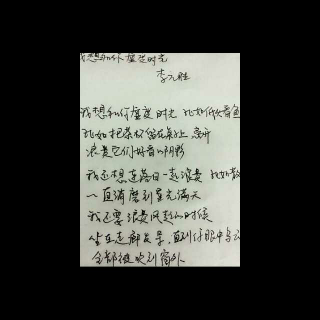 我想和你虚度时光
李元胜
我想和你虚度时光 比如低头看鱼
比如把茶杯留在桌上 离开
浪费它们好看的阴影
我还想连落日一起浪费 比如散
一直消磨到星光满天
我还要浪费风起的时候
坐在走廊发呆 直到你眼中乌云
全部被吹到窗外